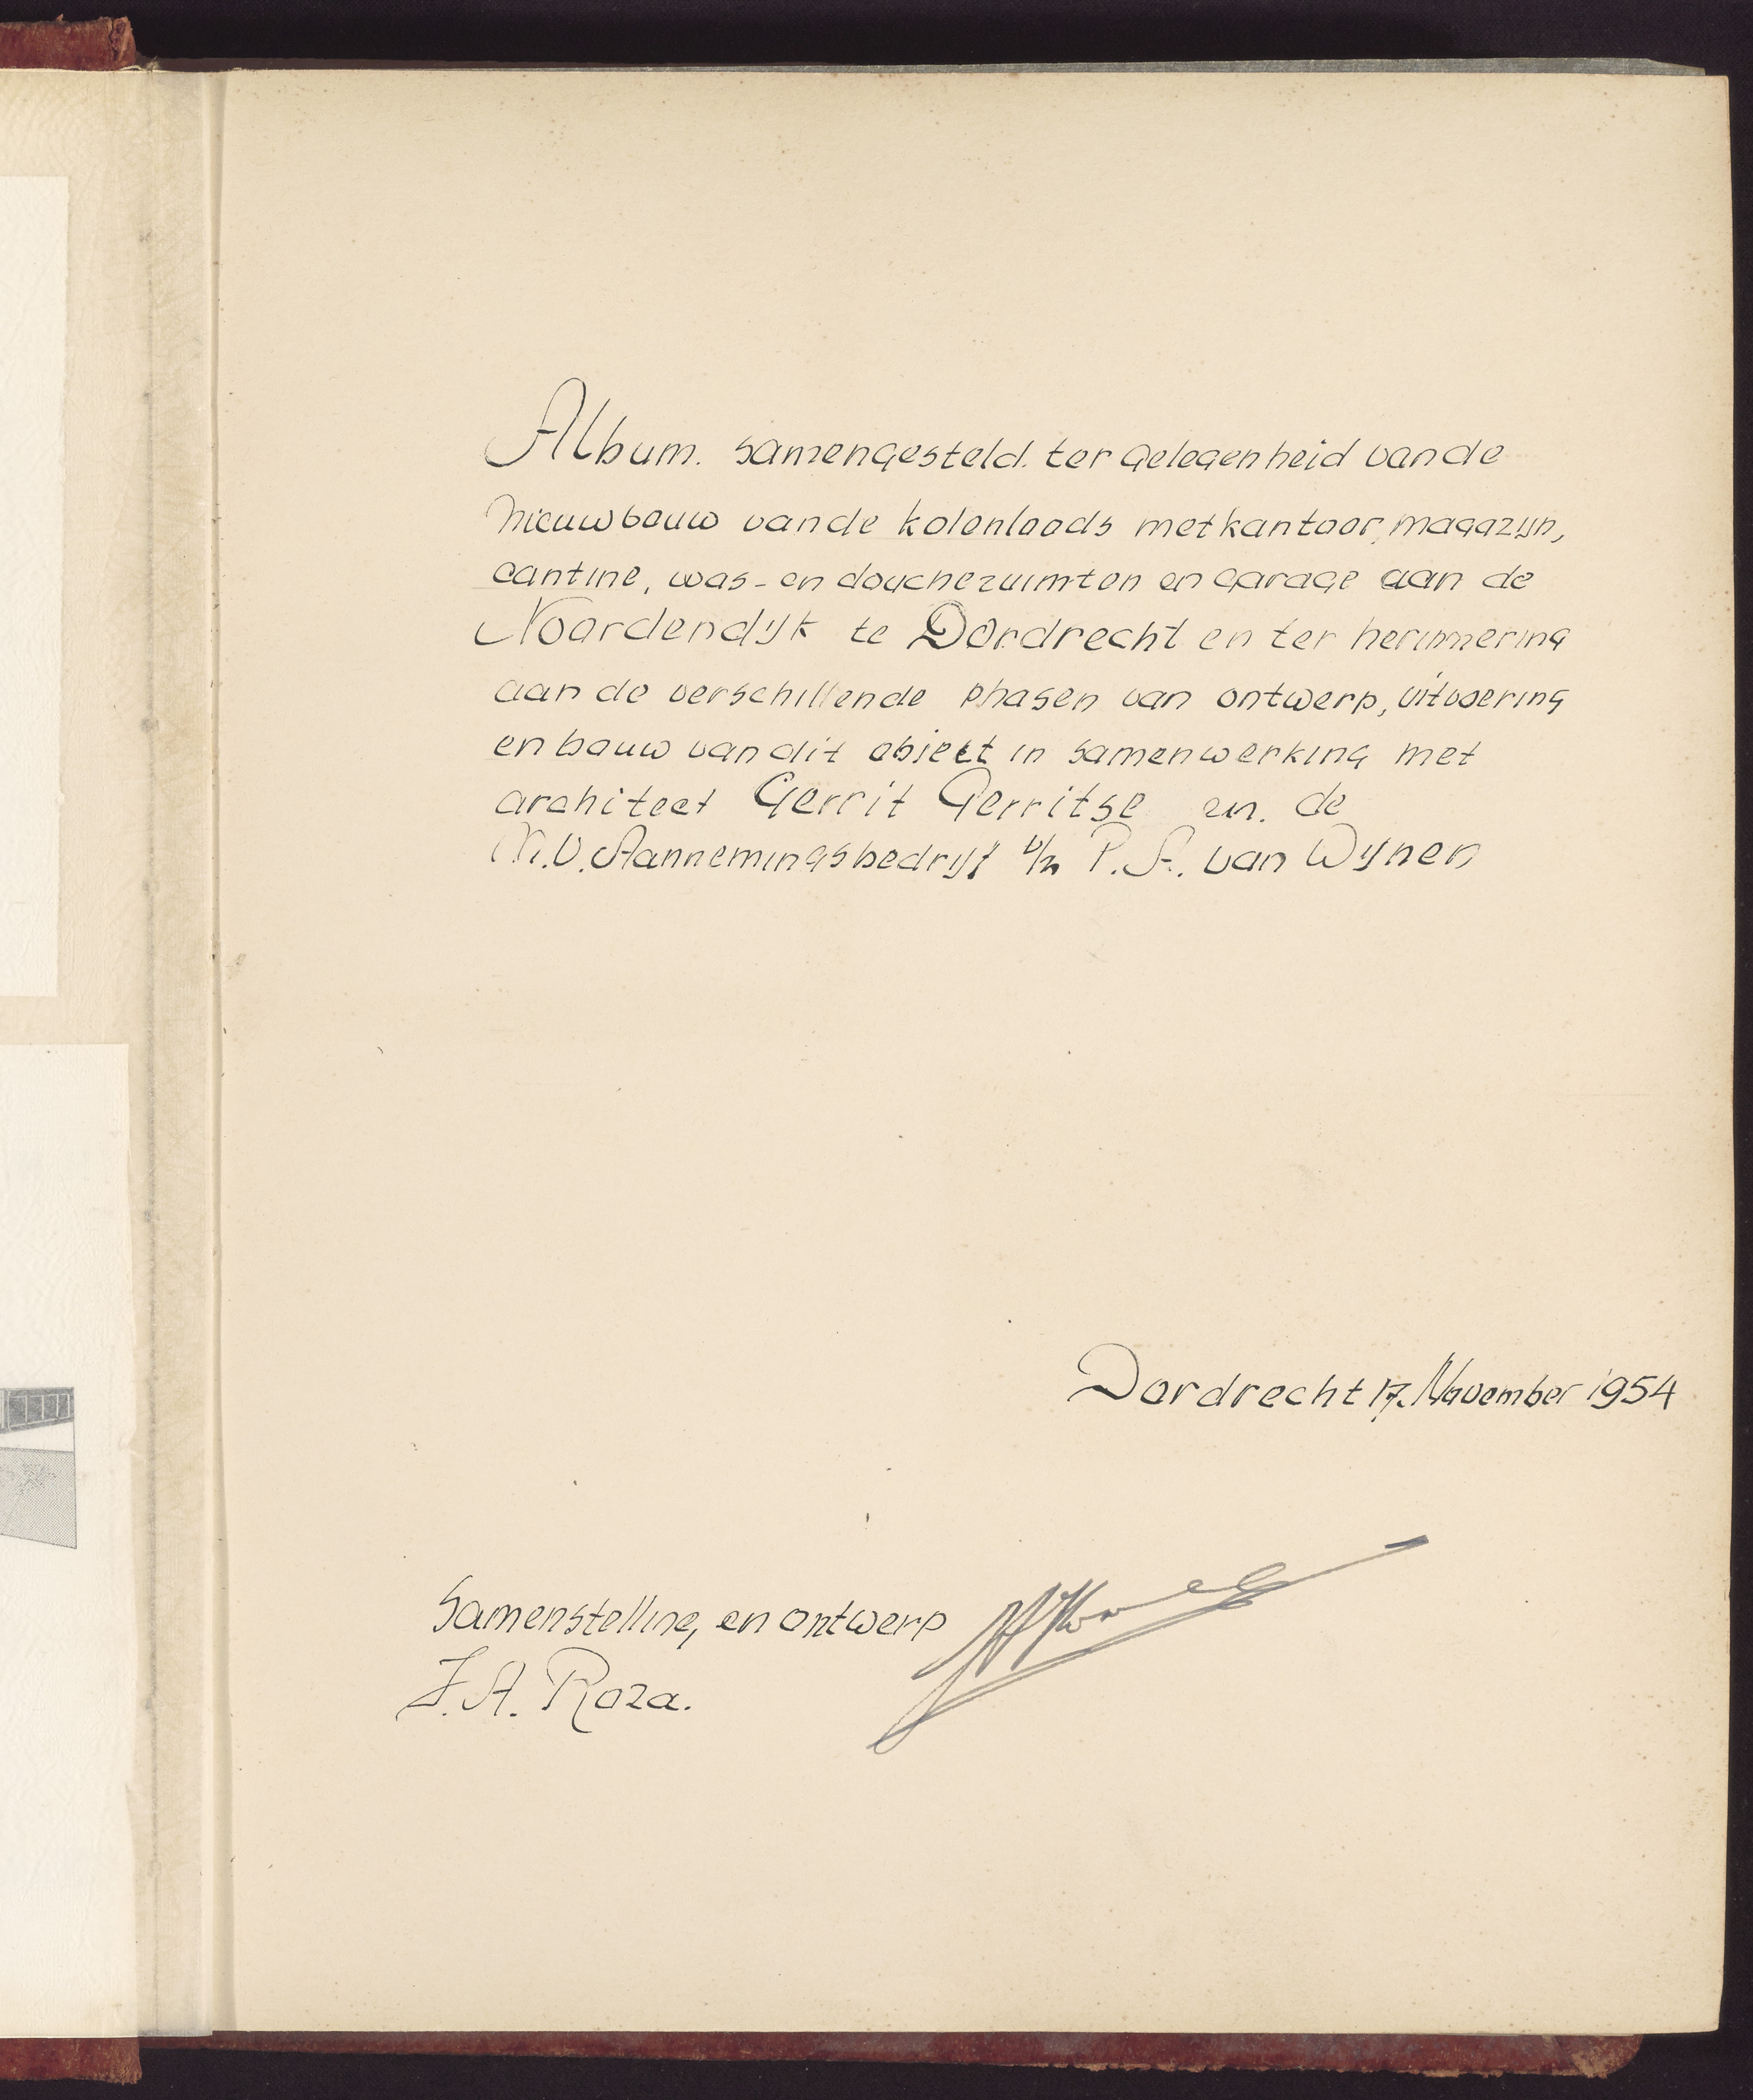 Album. samengesteld. ter gelegenheid van de
nieuwbouw van de kolenloods met kantoor, magazijn,
cantine, was- en doucheruimten en garage aan de
Noordendijk te Dordrecht en ter herinnering
aan de verschillende phasen van ontwerp, uitvoering
en bouw van dit object in samenwerking met
architect Gerrit Gerritse en. de
N.V. Aannemingsbedrijf v/h P.A. van Wijnen
Dordrecht 17. November 1954
Samenstelling en ontwerp
J. A. Roza.